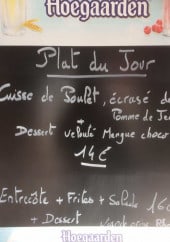 Hoegaarden
Plat du Jour
Cuisse de Poulet, écrasé de
Pomme de Te
Dessert velouté Mangue choco
14€
Entrecôte + Frites + Salade 16
+ Dessert
Hoegaarden